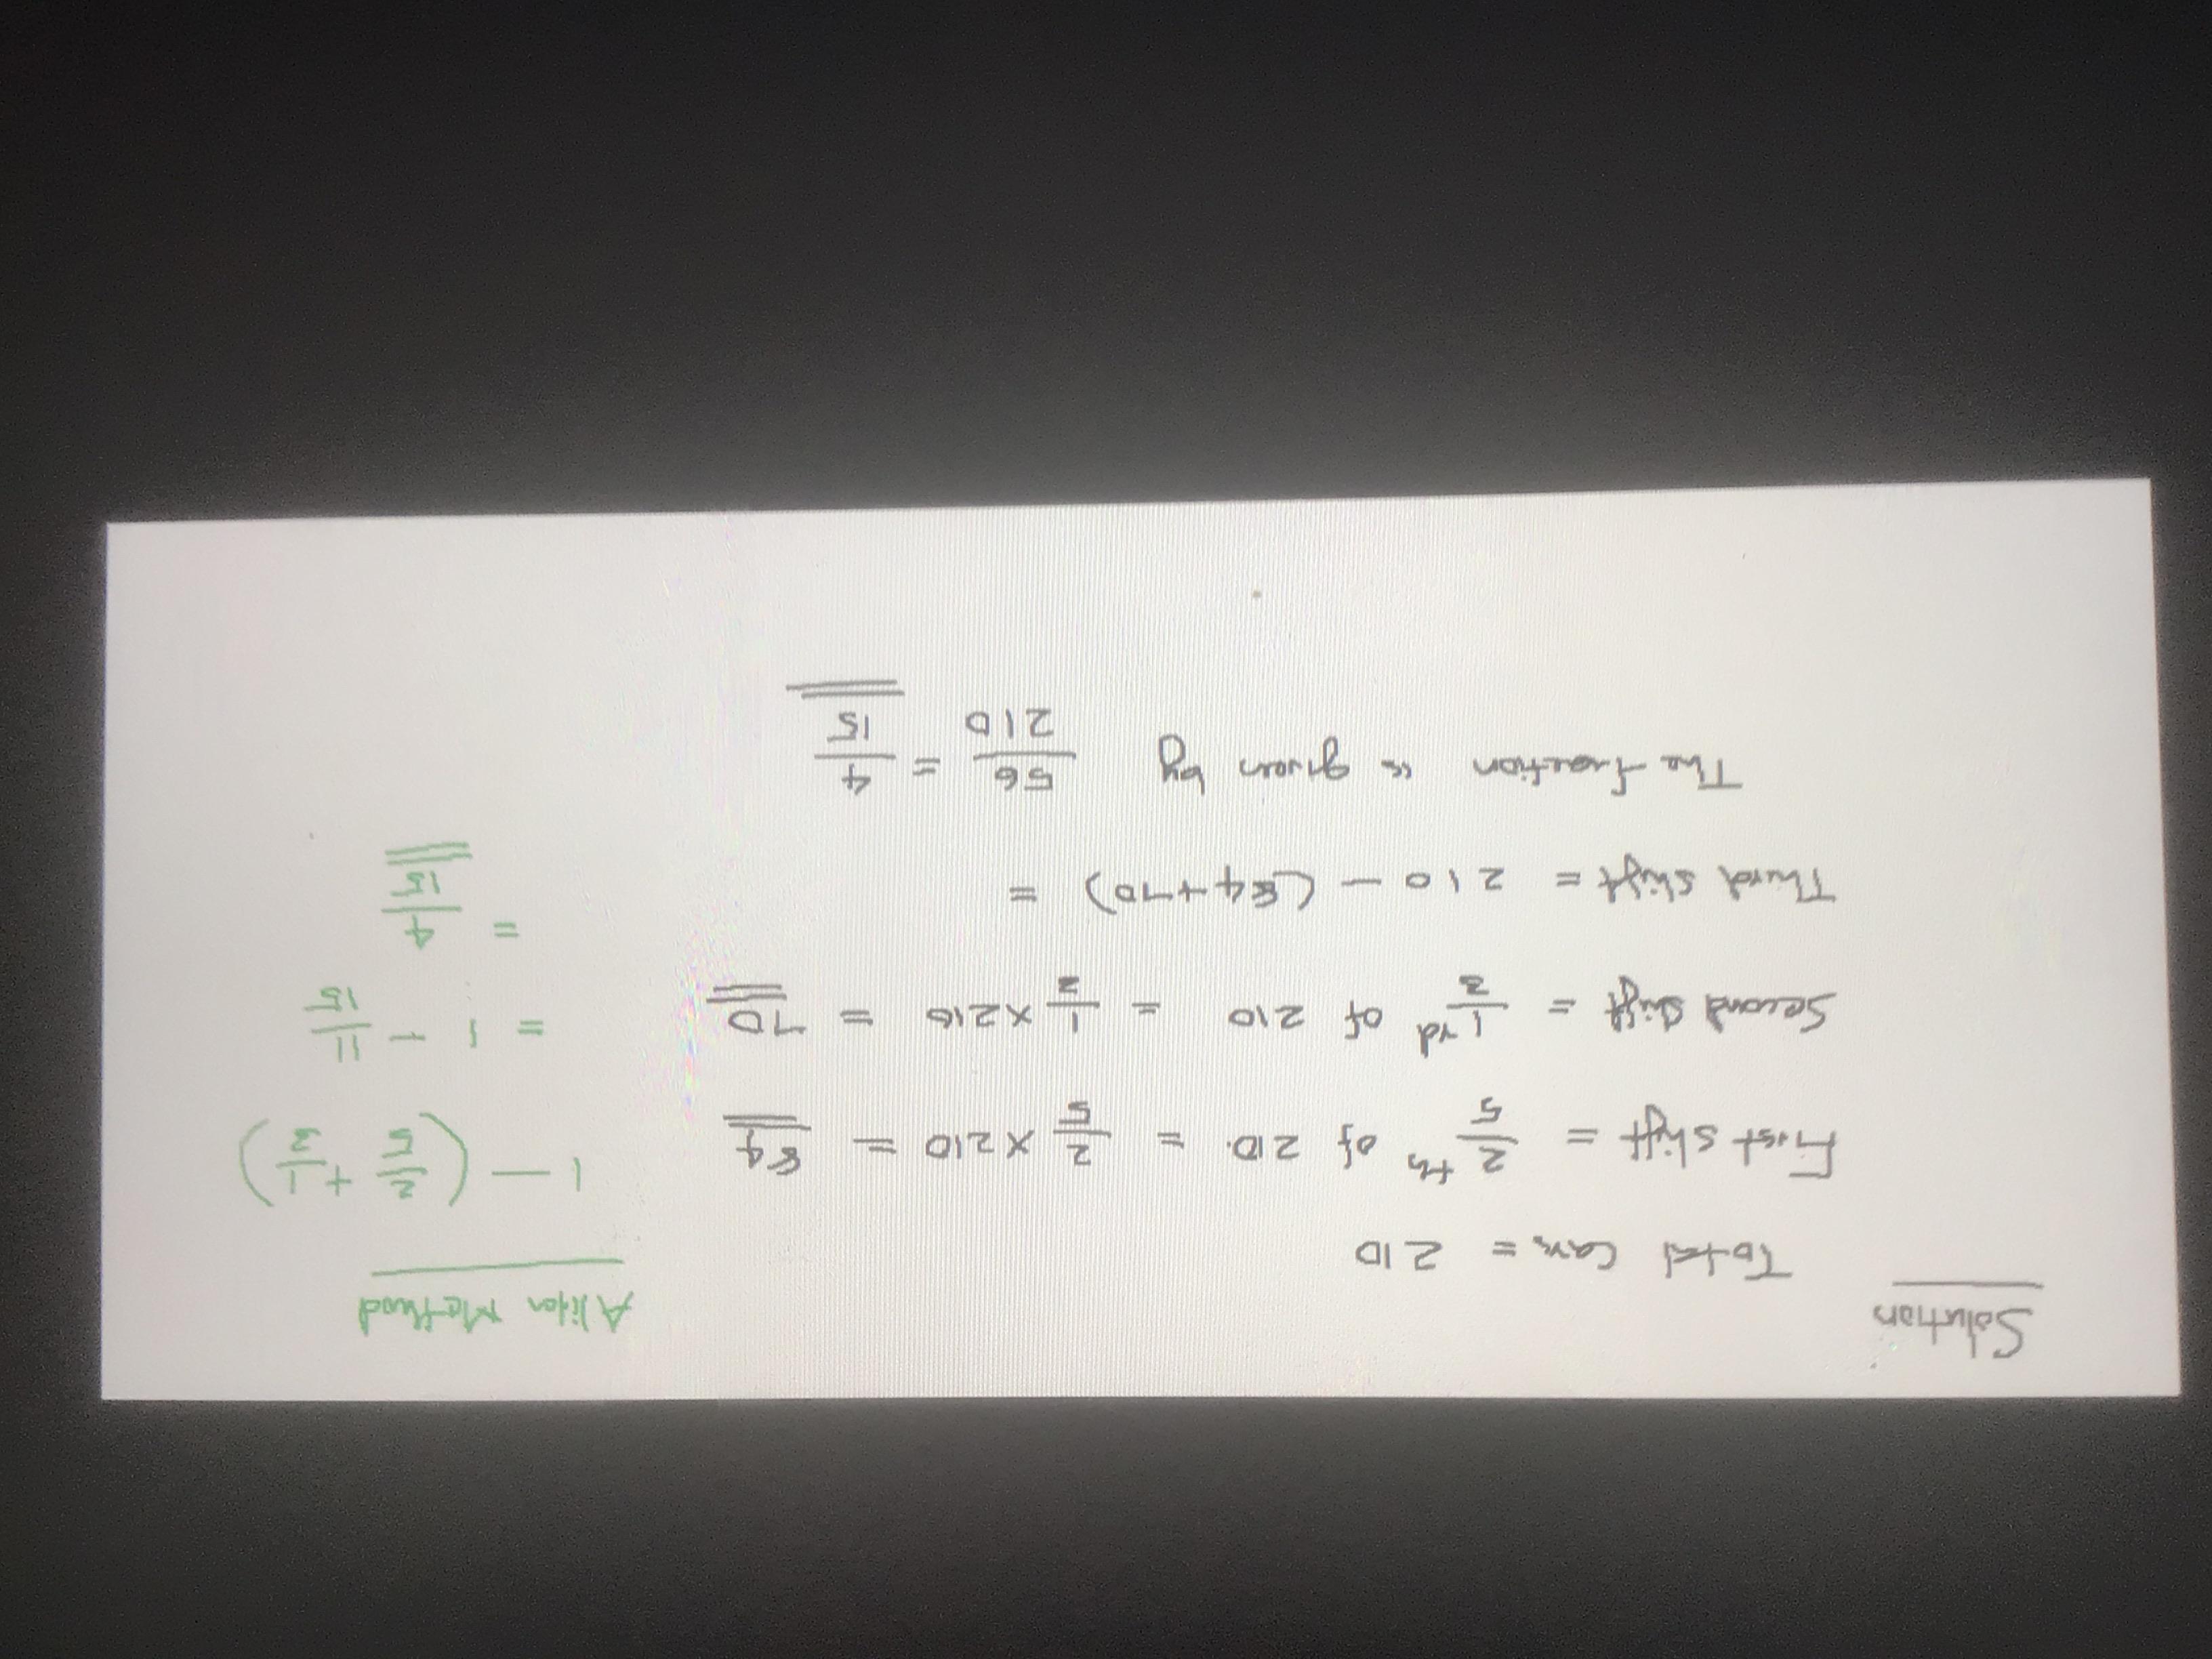 Solution
Total Cars = 210
First shift = 2/5 th of 210. = 2/5 × 210 = 84
Second shift = 1/3 rd of 210 = 1/3 × 210 = 70
Third shift = 210 - (84+70) =
The fraction is given by 56/210 = 4/15
Aliter Method
1 - (2/5 + 1/3)
= 1 - 11/15
= 4/15